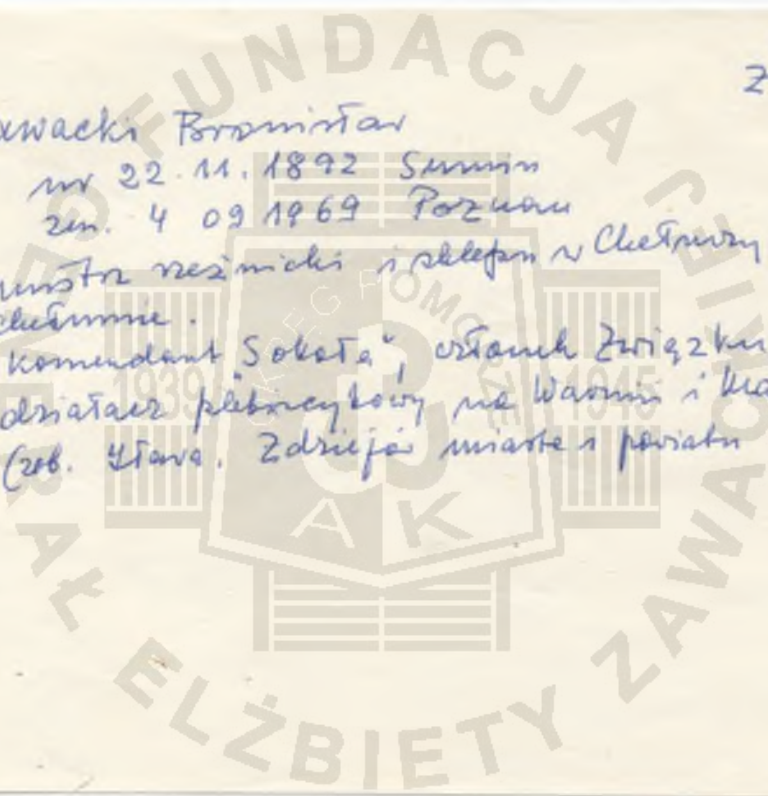 Z
awacki Bronisław
ur 22.11.1892 Sumin
zm. 4 09 1969 Poznań
mistrz rzeźnicki i sklepu w Chełmży
Chełmnie.
komendant "Sokoła", członek Związku
działacz plebiscytowy na Warmii i Ma
(zob. Iława. Z dziejów miasta i powiatu
FUNDACJA GENERAŁ ELŻBIETY ZAWACKIEJ
OKRĘG POMORZE
1939 1945
AK